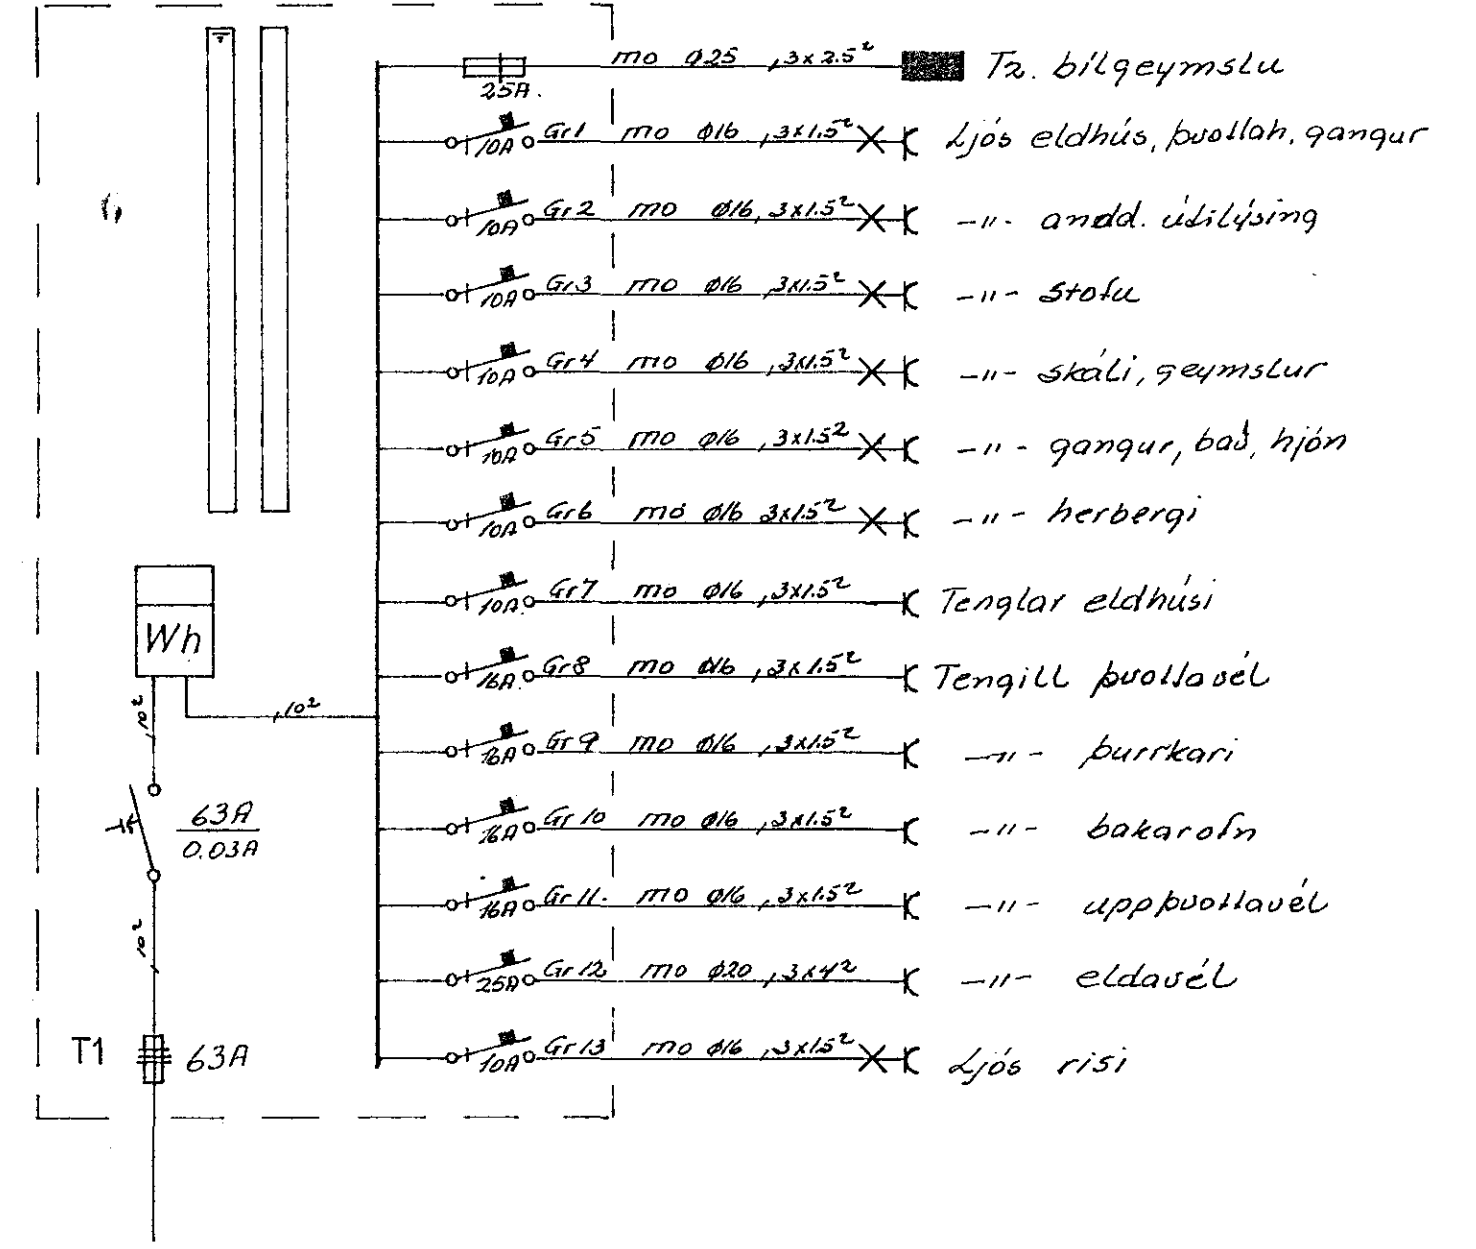 mo ø25 ,3x2.5² T2. bílgeymslu
25A.
10A Gr1 mo ø16 ,3x1.5² Ljós eldhús, þvottah, gangur
10A Gr2 mo ø16, 3x1.5² -"- andd. útilýsing
10A Gr3 mo ø16 ,3x1.5² -"- stofu
10A Gr4 mo ø16 ,3x1.5² -"- skáli, geymslur
10A Gr5 mo ø16 ,3x1.5² -"- gangur, bað, hjón
10A Gr6 mo ø16 3x1.5² -"- herbergi
10A Gr7 mo ø16 ,3x1.5² Tenglar eldhúsi
Wh
16A Gr8 mo ø16 ,3x1.5² Tengill þvottavél
,10²
,10²
16A Gr9 mo ø16 ,3x1.5² -"- þurrkari
63A
0.03A
16A Gr10 mo ø16 ,3x1.5² -"- bakarofn
16A Gr11. mo ø16 ,3x1.5² -"- uppþvottavél
,10²
25A Gr12 mo ø20 ,3x4² -"- eldavél
T1 63A
10A Gr13 mo ø16 ,3x1.5² Ljós risi